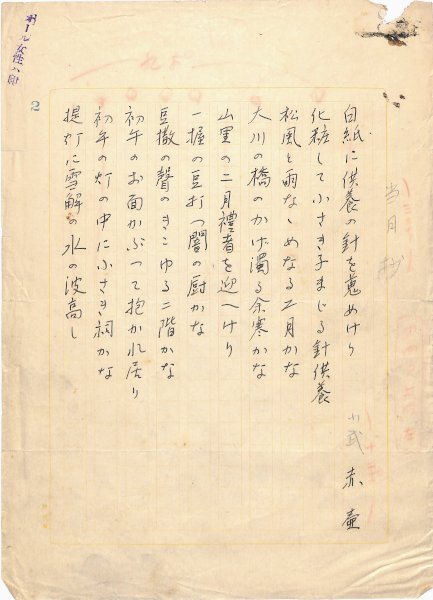 オール女性
2
当月抄
赤壺
白紙に供養の針を蒐めけり
化粧して小さき子まじる針供養
松風と雨なゝめなる二月かな
大川の橋のかげ濁る余寒かな
山里の二月禮者を迎へけり
一握の豆打つ闇の厨かな
豆撒の聲のきこゆる二階かな
初午のお面かぶつて抱かれ居り
初午の灯の中に小さき祠かな
提灯に雪解の水の波高し